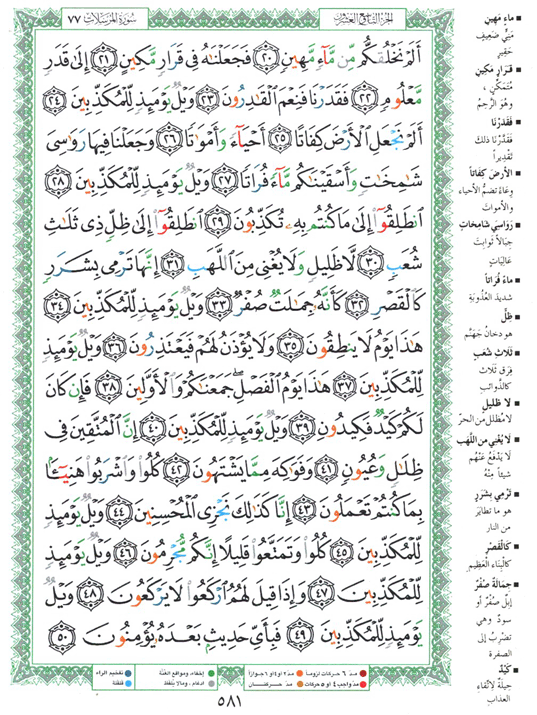 سورة المرسلات ٧٧
الجزء التاسع والعشرون
أَلَمْ نَخْلُقكُّم مِّن مَّآءٍ مَّهِينٍ ٢٠ فَجَعَلْنَٰهُ فِى قَرَارٍ مَّكِينٍ ٢١ إِلَىٰ قَدَرٍ
مَّعْلُومٍ ٢٢ فَقَدَرْنَا فَنِعْمَ ٱلْقَٰدِرُونَ ٢٣ وَيْلٌ يَوْمَئِذٍ لِّلْمُكَذِّبِينَ ٢٤
أَلَمْ نَجْعَلِ ٱلْأَرْضَ كِفَاتًا ٢٥ أَحْيَآءً وَأَمْوَٰتًا ٢٦ وَجَعَلْنَا فِيهَا رَوَٰسِىَ
شَٰمِخَٰتٍ وَأَسْقَيْنَٰكُم مَّآءً فُرَاتًا ٢٧ وَيْلٌ يَوْمَئِذٍ لِّلْمُكَذِّبِينَ ٢٨
ٱنطَلِقُوٓا۟ إِلَىٰ مَا كُنتُم بِهِۦ تُكَذِّبُونَ ٢٩ ٱنطَلِقُوٓا۟ إِلَىٰ ظِلٍّ ذِى ثَلَٰثِ
شُعَبٍ ٣٠ لَّا ظَلِيلٍ وَلَا يُغْنِى مِنَ ٱللَّهَبِ ٣١ إِنَّهَا تَرْمِى بِشَرَرٍ
كَٱلْقَصْرِ ٣٢ كَأَنَّهُۥ جِمَٰلَتٌ صُفْرٌ ٣٣ وَيْلٌ يَوْمَئِذٍ لِّلْمُكَذِّبِينَ ٣٤
هَٰذَا يَوْمُ لَا يَنطِقُونَ ٣٥ وَلَا يُؤْذَنُ لَهُمْ فَيَعْتَذِرُونَ ٣٦ وَيْلٌ يَوْمَئِذٍ
لِّلْمُكَذِّبِينَ ٣٧ هَٰذَا يَوْمُ ٱلْفَصْلِ ۖ جَمَعْنَٰكُمْ وَٱلْأَوَّلِينَ ٣٨ فَإِن كَانَ
لَكُمْ كَيْدٌ فَكِيدُونِ ٣٩ وَيْلٌ يَوْمَئِذٍ لِّلْمُكَذِّبِينَ ٤٠ إِنَّ ٱلْمُتَّقِينَ فِى
ظِلَٰلٍ وَعُيُونٍ ٤١ وَفَوَٰكِهَ مِمَّا يَشْتَهُونَ ٤٢ كُلُوا۟ وَٱشْرَبُوا۟ هَنِيٓـًٔۢا
بِمَا كُنتُمْ تَعْمَلُونَ ٤٣ إِنَّا كَذَٰلِكَ نَجْزِى ٱلْمُحْسِنِينَ ٤٤ وَيْلٌ يَوْمَئِذٍ
لِّلْمُكَذِّبِينَ ٤٥ كُلُوا۟ وَتَمَتَّعُوا۟ قَلِيلًا إِنَّكُم مُّجْرِمُونَ ٤٦ وَيْلٌ يَوْمَئِذٍ
لِّلْمُكَذِّبِينَ ٤٧ وَإِذَا قِيلَ لَهُمُ ٱرْكَعُوا۟ لَا يَرْكَعُونَ ٤٨ وَيْلٌ
يَوْمَئِذٍ لِّلْمُكَذِّبِينَ ٤٩ فَبِأَىِّ حَدِيثٍۭ بَعْدَهُۥ يُؤْمِنُونَ ٥٠
ماءٍ مَهينٍ
مَنيٍّ ضعيفٍ
حَقيرٍ
قرارٍ مَكينٍ
مُتَمَكِّنٍ،
وهو الرَّحِمُ
فَقَدَرْنا
فقدَّرْنا ذلك
تَقْديراً
الأرضَ كِفاتاً
وِعاءً تضمُّ الأحياءَ
والأمواتَ
رَوَاسيَ شَامِخاتٍ
جبالاً ثوابتَ
عالياتٍ
ماءً فُراتاً
شديدَ العُذوبَةِ
ظِلٍّ
هو دخانُ جَهَنَّم
ثلاثِ شُعَبٍ
فِرَقٍ ثَلاثٍ
كالذَّوائب
لا ظليلٍ
لا مُظلِّلٍ من الحَرِّ
لا يُغني من اللّهَب
لا يَدفَعُ عَنْهُم
شيئاً مِنْهُ
تَرْمي بِشَرَرٍ
هو ما تطايَرَ
من النار
كالقَصْرِ
كالبناء العَظيمِ
جِمالةٌ صُفْرٌ
إبلٌ صُفْرٌ أو
سودٌ وهي
تضرِبُ إلى
الصفرة
كَيْدٌ
حِيلَةٌ لاتّقاءِ
العذابِ
مدّ ٦ حركات لزوماً
مدّ ٢ أو ٤ أو ٦ جوازاً
إخفاء، ومواقع الغُنَّة
تفخيم الراء
مدّ واجب ٤ أو ٥ حركات
مدّ حركتان
ادغام، وما لا يُلفَظ
قلقلة
٥٨١